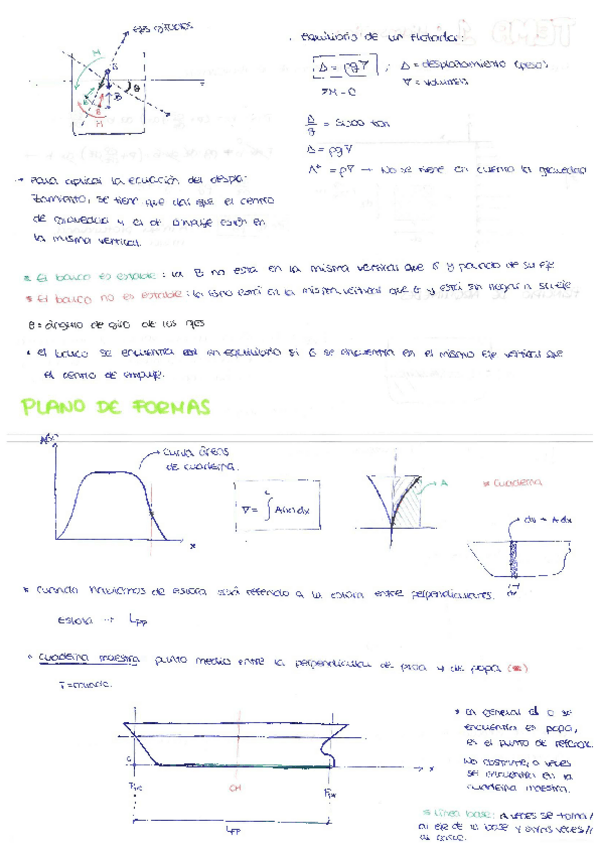 Equilibrio de un flotador:
Δ = ρg∇ ; Δ = desplazamiento (peso)
∇ = volumen
Δ/g = ton
Δ = ρg∇
Δ* = ρ∇ → No se tiene en cuenta la gravedad
M
G
B
θ
→ Para aplicar la ecuación del despla-
zamiento, se tiene que el centro
de gravedad y el de empuje estén en
la misma vertical.
* El barco es estable: la B no está en la misma vertical que G y su eje
* El barco no es estable: la misma vertical que G y está su eje
θ = ángulo de giro de los ejes
* el barco se encuentra en equilibrio si G se encuentra en el mismo eje vertical que
el centro de empuje.
PLANO DE FORMAS
A(x)
Curva áreas
de cuaderna.
x
∇ = ∫ A(x) dx
L
A
* Cuaderna
dv = A dx
* Cuando hablamos de eslora está referido a la eslora entre perpendiculares.
Eslora → Lpp
* Cuaderna maestra punto medio entre la perpendicular de proa y de popa
T = calado.
* En general el 0 se
encuentra en popa,
es el punto de
No obstante, a veces
se encuentra en la
cuaderna maestra.
x
Lpp
* Línea base: a veces se toma
al eje de la base y otras veces
al casco.